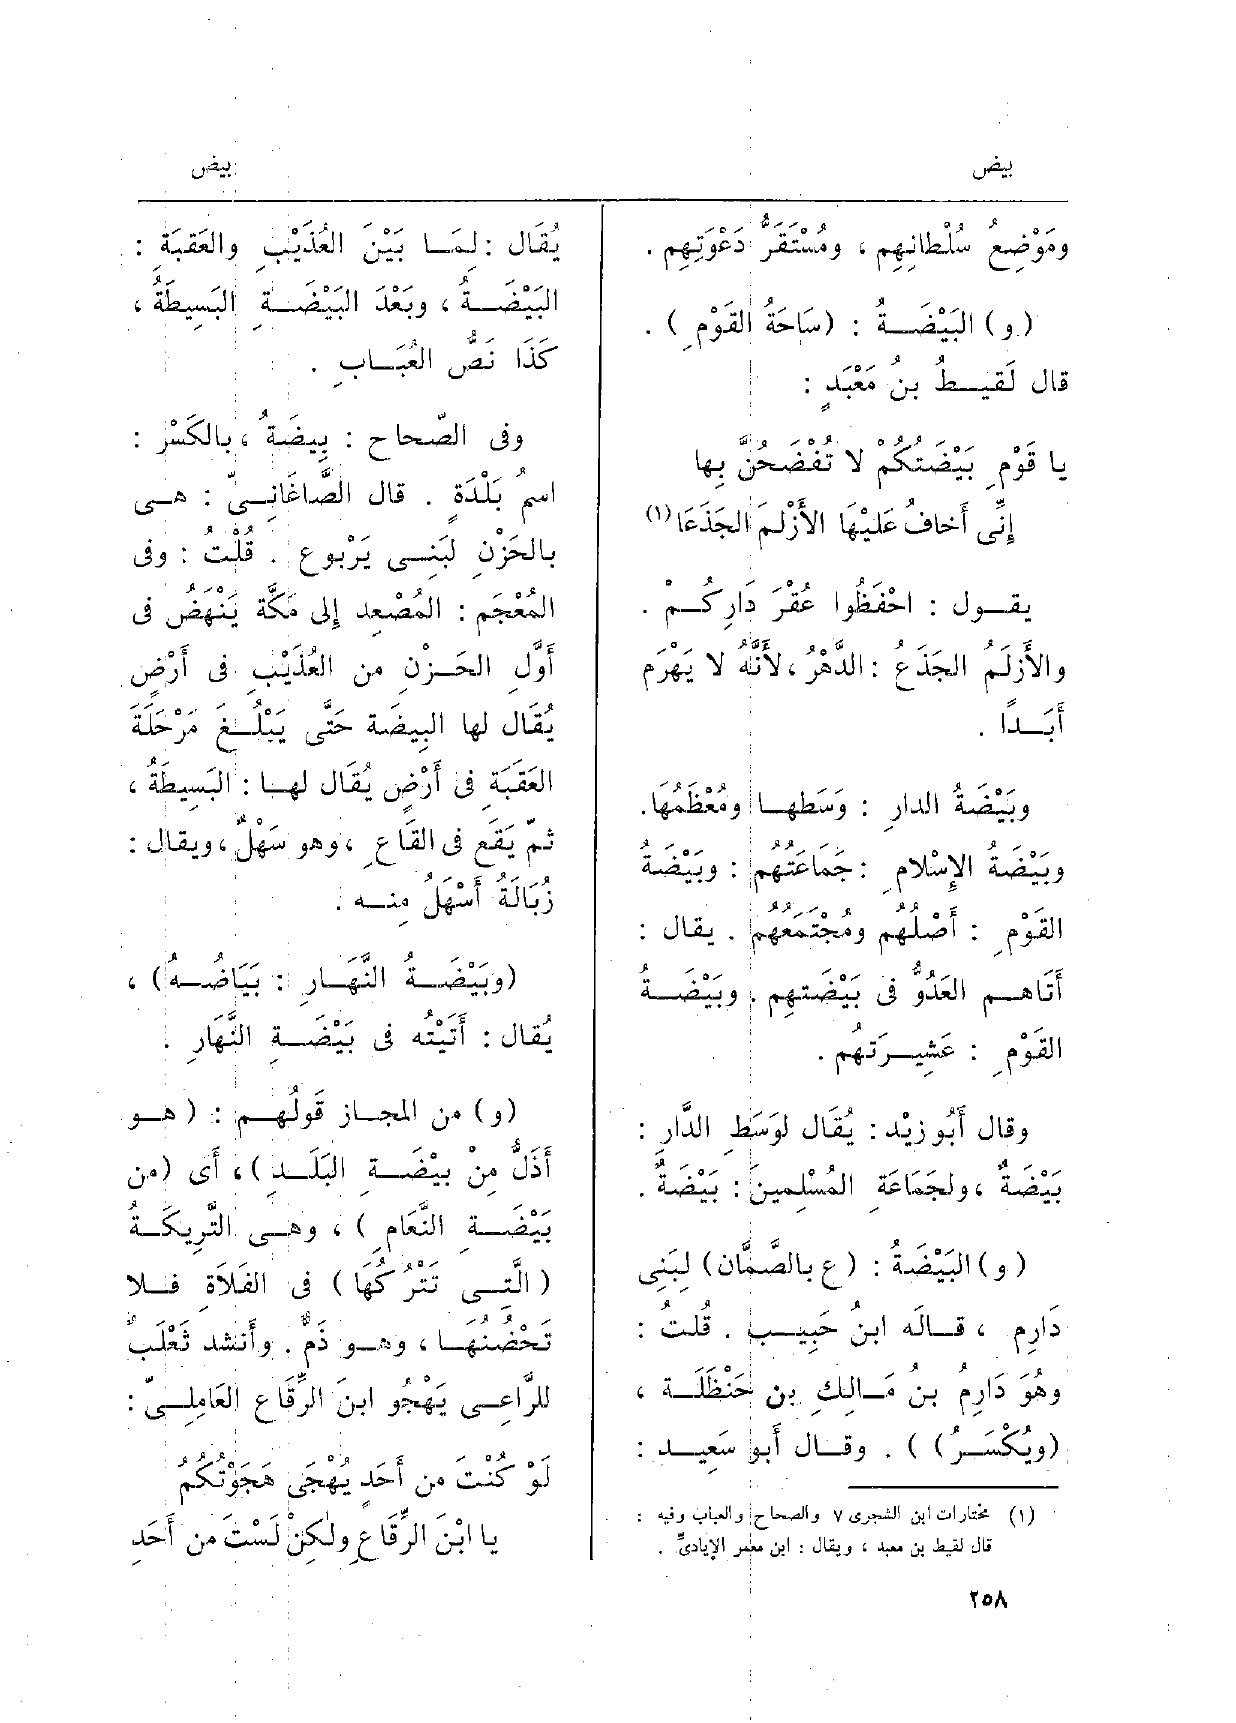 بيض
بيض
ومَوْضِعُ سُلْطانِهِم ، ومُسْتَقَرُّ دَعْوَتِهِم .
( و ) البَيْضَةُ : (سَاحَةُ القَوْمِ ) .
قال لَقيطُ بنُ مَعْبَدٍ :
يا قَوْمِ بَيْضَتكُمْ لا تُفْضَحُنَّ بِها
إِنِّى أَخافُ عَلَيْهَا الأَزْلَمَ الجَذَعَا (١)
يقول : احْفَظُوا عُقْرَ دَارِكُمْ .
والأَزلَمُ الجَذَعُ : الدَّهْرُ ، لأَنَّهُ لا يَهْرَم
أَبَداً .
وبَيْضَةُ الدارِ : وَسَطها ومُعْظَمُهَا.
وبَيْضَةُ الإِسْلامِ : جَماعَتُهم : وبَيْضَةُ
القَوْمِ : أَصْلُهُم ومُجْتَمَعُهُم . يقال :
أَتَاهم العَدُوُّ فى بَيْضَتِهِم . وبَيْضَةُ
القَوْمِ : عَشِيرَتُهُم .
وقال أَبُو زيْد : يُقَال لوَسَطِ الدَّارِ :
بَيْضَةٌ ، ولجَمَاعَةِ المُسْلِمينَ : بَيْضَةٌ .
( و ) البَيْضَةُ : ( ع بالصَّمَّان) لِبَنِى
دَارِم ، قاله ابنُ حَبِيب . قُلتُ :
وهُوَ دَارِمُ بن مَالِكِ بنِ حَنْظَلَة ،
(ويُكْسَرُ) ) . وقال أَبو سَعِيد :
(١) مختارات ابن الشجرى ٧ والصحاح والعباب وفيه :
قال لقيط بن معبد ، ويقال : ابن معمر الإيادىّ .
٢٥٨
يُقَال : لِمَا بَيْنَ العُذَيْبِ والعَقَبَةِ :
البَيْضَةُ ، وبَعْدَ البَيْضَةِ البَسِيطَةُ ،
كَذَا نَصُّ العُبَابِ .
وفى الصّحاح : بِيضَةُ ، بالكَسْرِ :
اسمُ بَلْدَةٍ . قال الصَّاغَانِىّ : هى
بالحَزْنِ لبَنِى يَرْبوع . قُلْتُ : وفى
المُعْجَم : المُصْعد إلى مَكَّة يَنْهَضُ فى
أَوَّلِ الحَزْنِ من العُذَيْبِ فى أَرْضٍ
يُقَال لها البِيضَة حَتَّى يَبْلُغَ مَرْحَلَةَ
العَقَبَةِ فى أَرْضٍ يُقَال لها : البَسِيطَةُ ،
ثمّ يَقَع فى القَاعِ ، وهو سَهْلٌ ، ويقال :
زُبَالَةُ أَسْهَلُ مِنه .
(وبَيْضَةُ النَّهَارِ : بَيَاضُه) ،
يُقال : أَتَيْتُه فى بَيْضَةِ النَّهَارِ .
(و) من المجاز قَولُهم : ( هو
أَذَلُّ مِنْ بَيْضَةِ البَلَدِ ) ، أَى (من
بَيْضَةِ النَّعَامِ ) ، وهى التَّرِيكَةُ
( الَّتِى تَتْرُكُهَا ) فى الفَلَاةِ فلا
تَحْضُنُهَا ، وهو ذَمٌّ . وأَنشد ثَعْلَبٌ
للرَّاعِى يَهْجُو ابنَ الرِّقَاعِ العَامِلِىّ :
لَوْ كُنْتَ من أَحَدٍ يُهْجَى هَجَوْتُكُم
يا ابْنَ الرِّقَاعِ ولكِنْ لَسْتَ من أَحَدِ